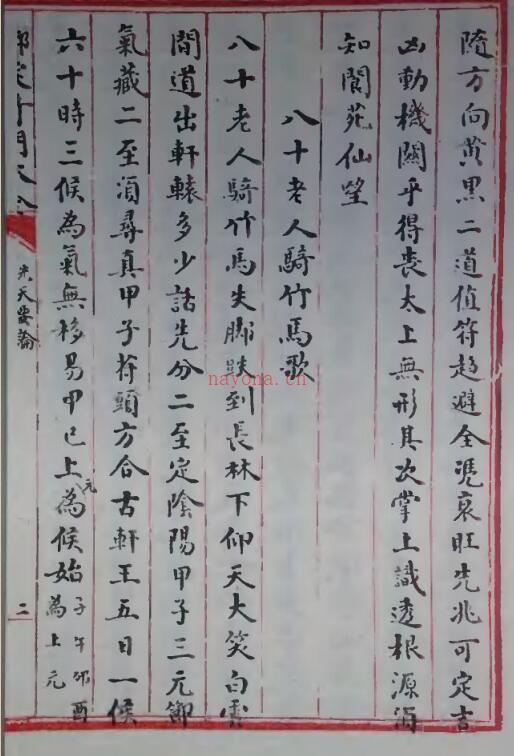 隨方向黃黑二道值符趨避全憑衰旺先兆可定吉
凶動機關乎得喪太上無形其次掌上識透根源猶
如閬苑仙墅
八十老人騎竹馬歌
八十老人騎竹馬失脚跌到長林下仰天大笑白雲
間道出軒轅多少話先分二至定陰陽甲子三元節
氣藏二至須尋真甲子符頭方合古軒王五日一候
六十時三候為氣無移易甲己上元為候始子午卯酉
為上元
奇門
天要論
二
nayona.cn